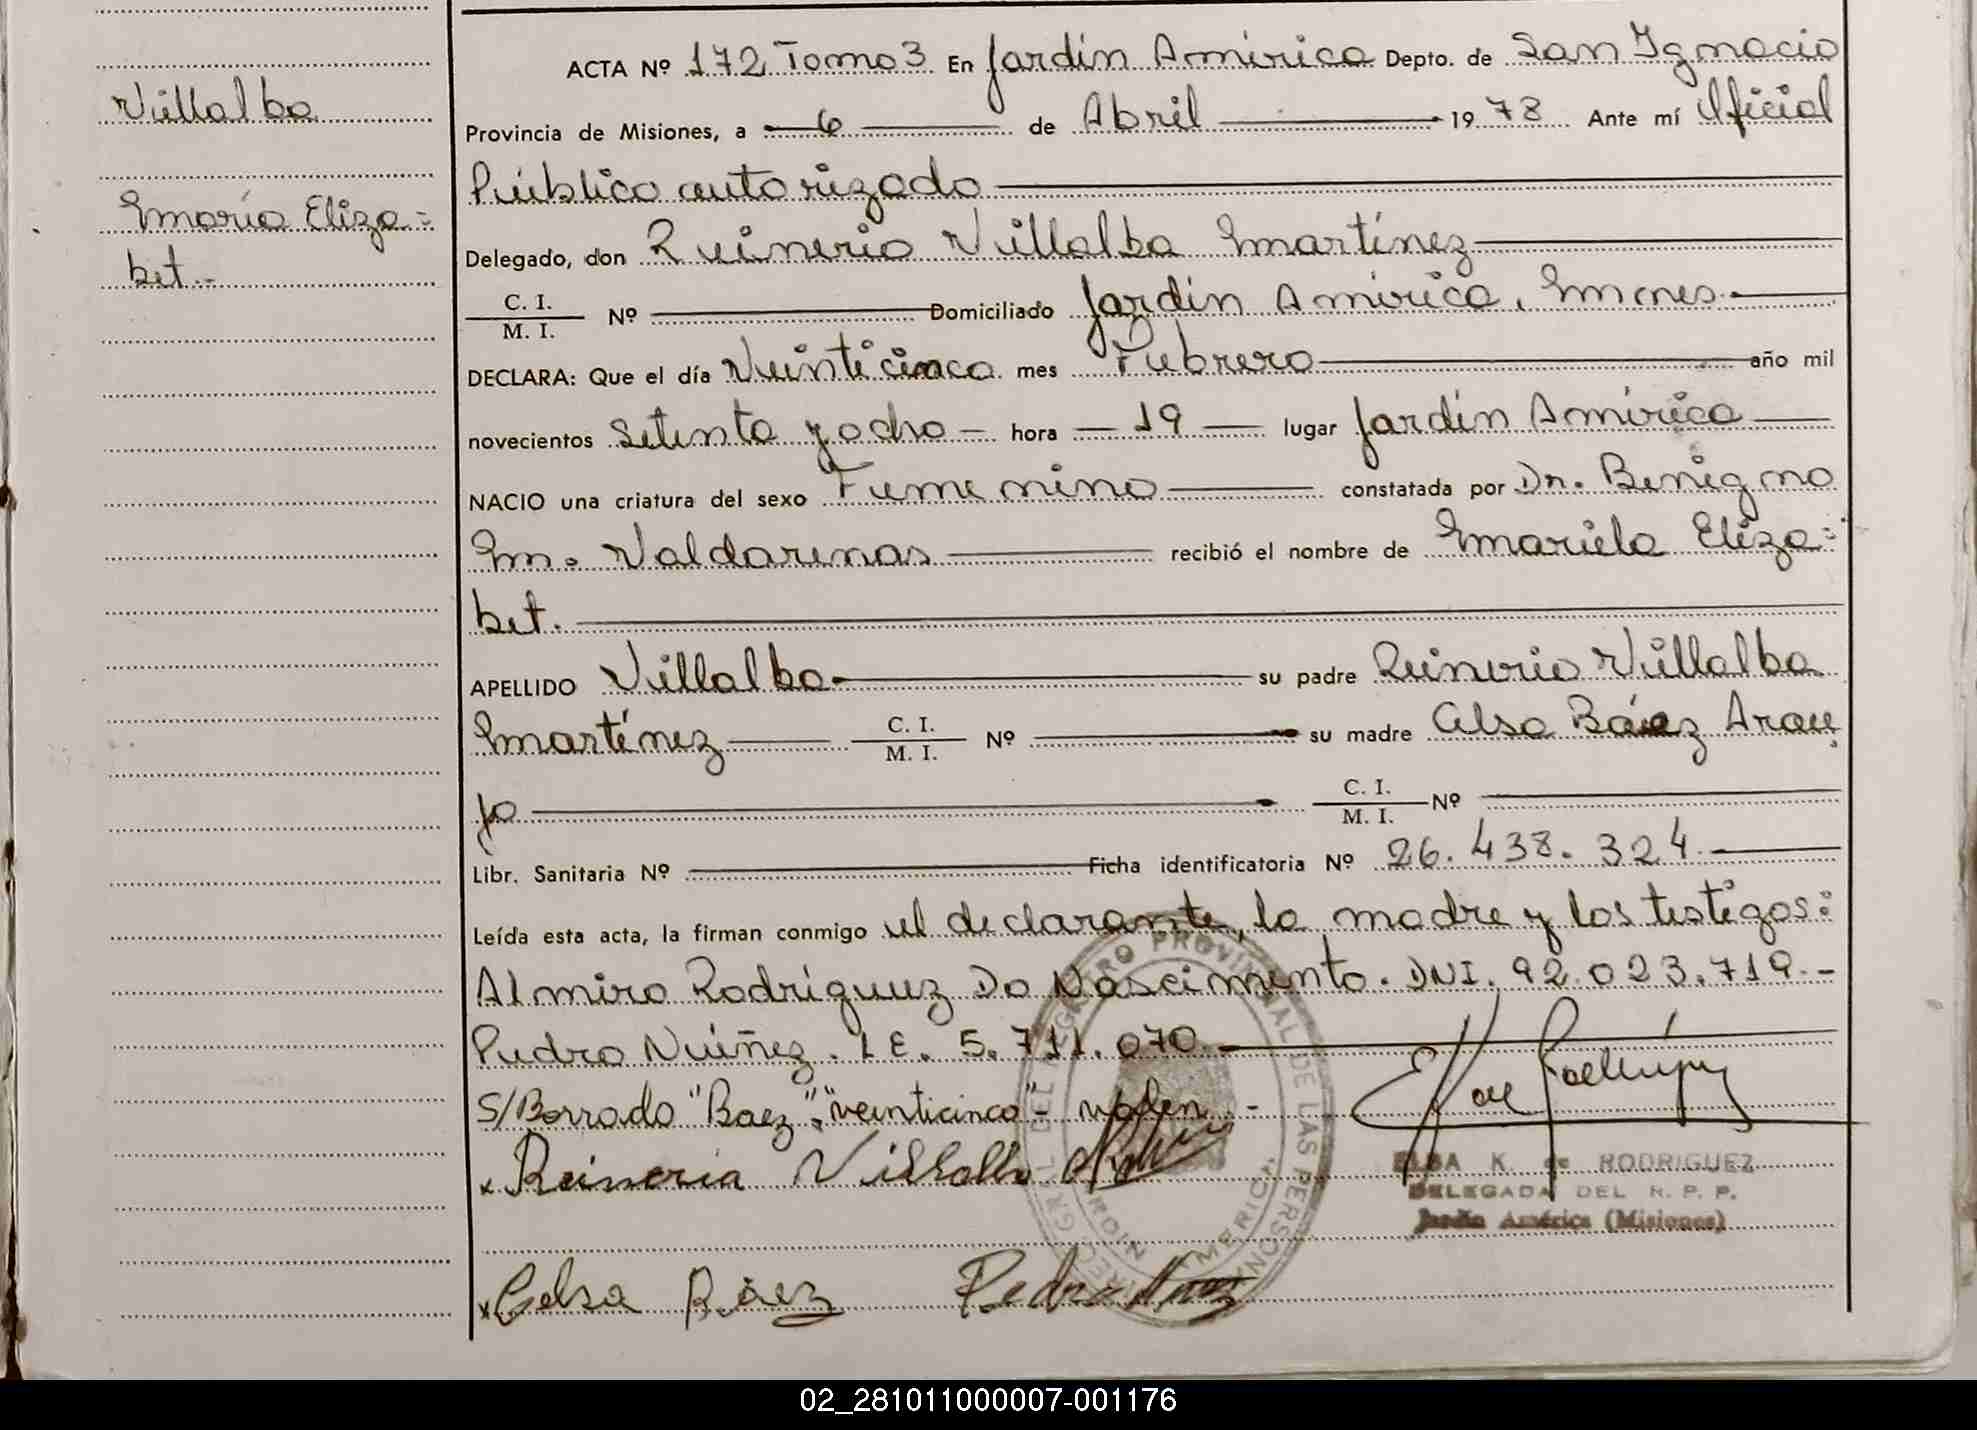 Villalba
María Eliza=
bet.-
ACTA Nº 172 Tomo 3 En Jardín América Depto. de San Ignacio
Provincia de Misiones, a 6 de Abril 1978 Ante mí Oficial
Público autorizado
Delegado, don Reinerio Villalba Martínez
C. I.
M. I. Nº Domiciliado Jardín América, Mnes.
DECLARA: Que el día Veinticinco mes Febrero año mil
novecientos Setenta y ocho - hora - 19 - lugar Jardín América
NACIO una criatura del sexo Femenino constatada por Dr. Benigno
M. Valdarenas recibió el nombre de Mariela Eliza=
bet.
APELLIDO Villalba su padre Reinerio Villalba
Martínez C. I. M. I. Nº su madre Celsa Báez Arau
jo C. I. M. I. Nº
Libr. Sanitaria Nº Ficha identificatoria Nº 26.438.324.
Leída esta acta, la firman conmigo el declarante, la madre y los testigos:
Almiro Rodríguez Do Nascimento. DNI. 92.023.719.-
Pedro Núñez. LE. 5.711.070.
S/Borrado "Baez", "veinticinco" - valen. -
x Reinerio Villalba
ELBA K. de RODRIGUEZ
DELEGADA DEL R. P. P.
Jardín América (Misiones)
x Celsa Báez Pedro Nuñez
REGISTRO PROVINCIAL DE LAS PERSONAS
02_281011000007-001176